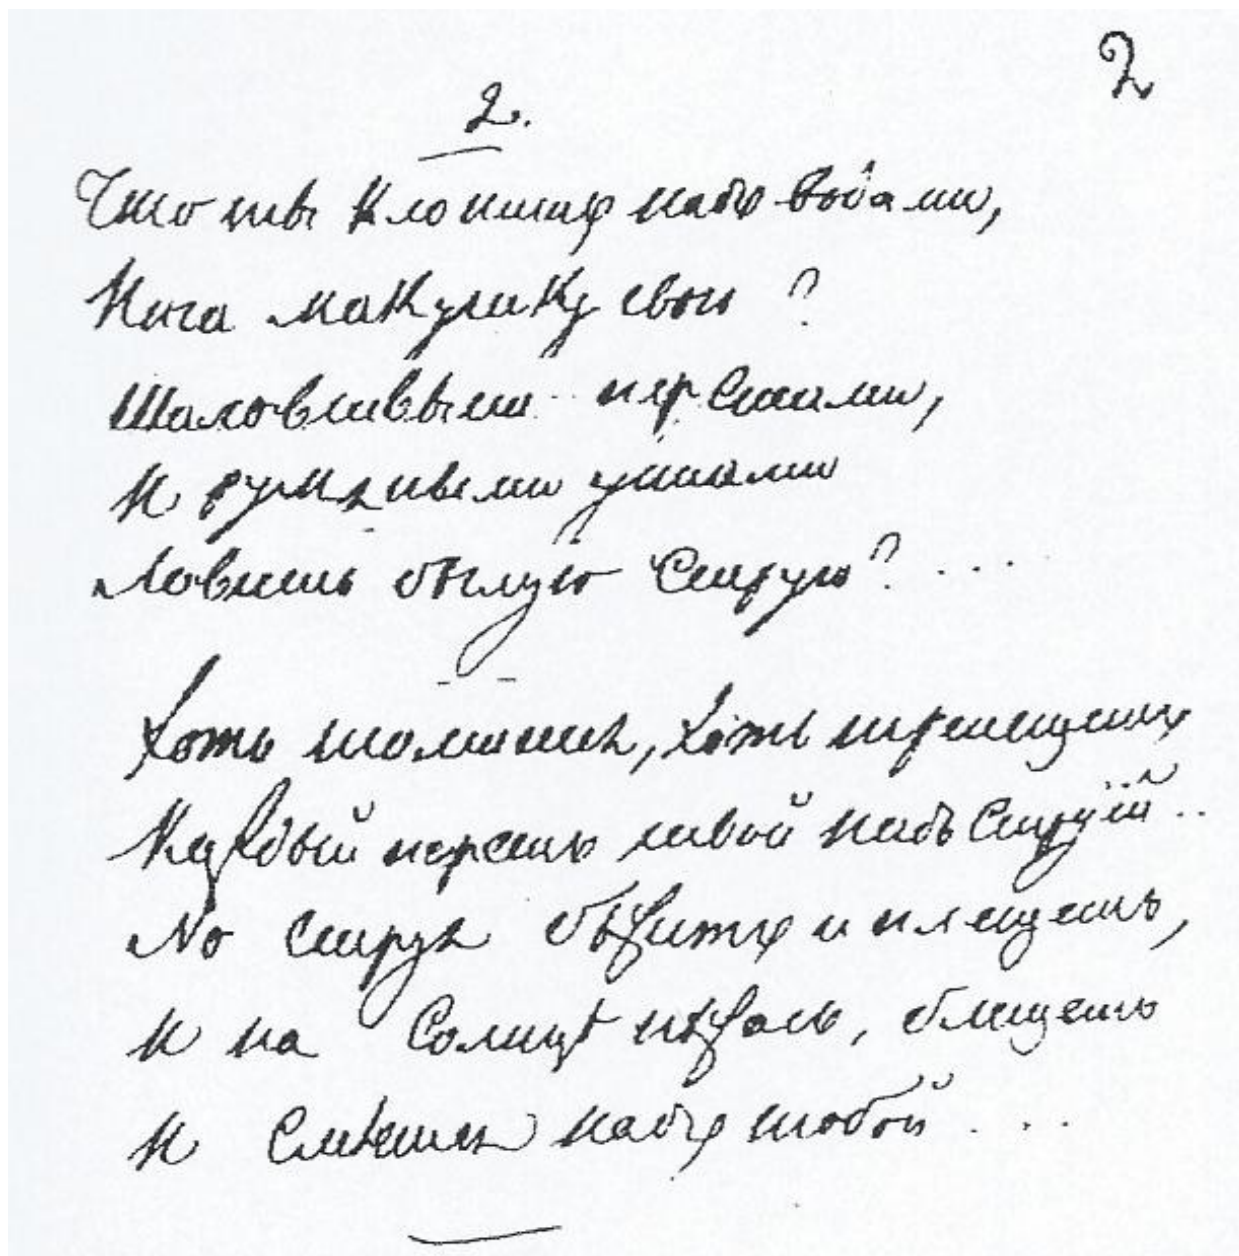 2
2.
Что ты клонишь надъ водами,
Ива макушку свою ?
Шаловливыми перстами,
И румяными устами
Ловишь бѣглую струю? ...
Хоть томится, хоть трепещетъ
Каждый перстъ твой надъ струей..
Но струя бѣжитъ и плещетъ,
И на солнцѣ нѣжась, блещетъ
И смѣется надъ тобой ...